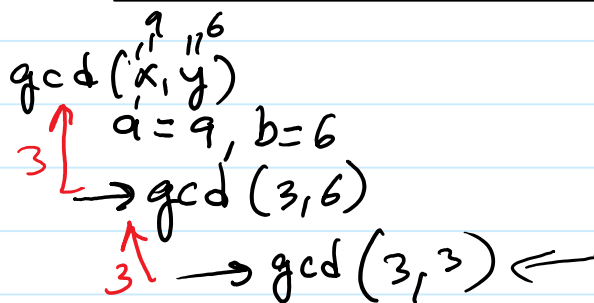 9 6
gcd (x, y)
a = 9, b = 6
3 → gcd (3, 6)
3 → gcd (3, 3) ←